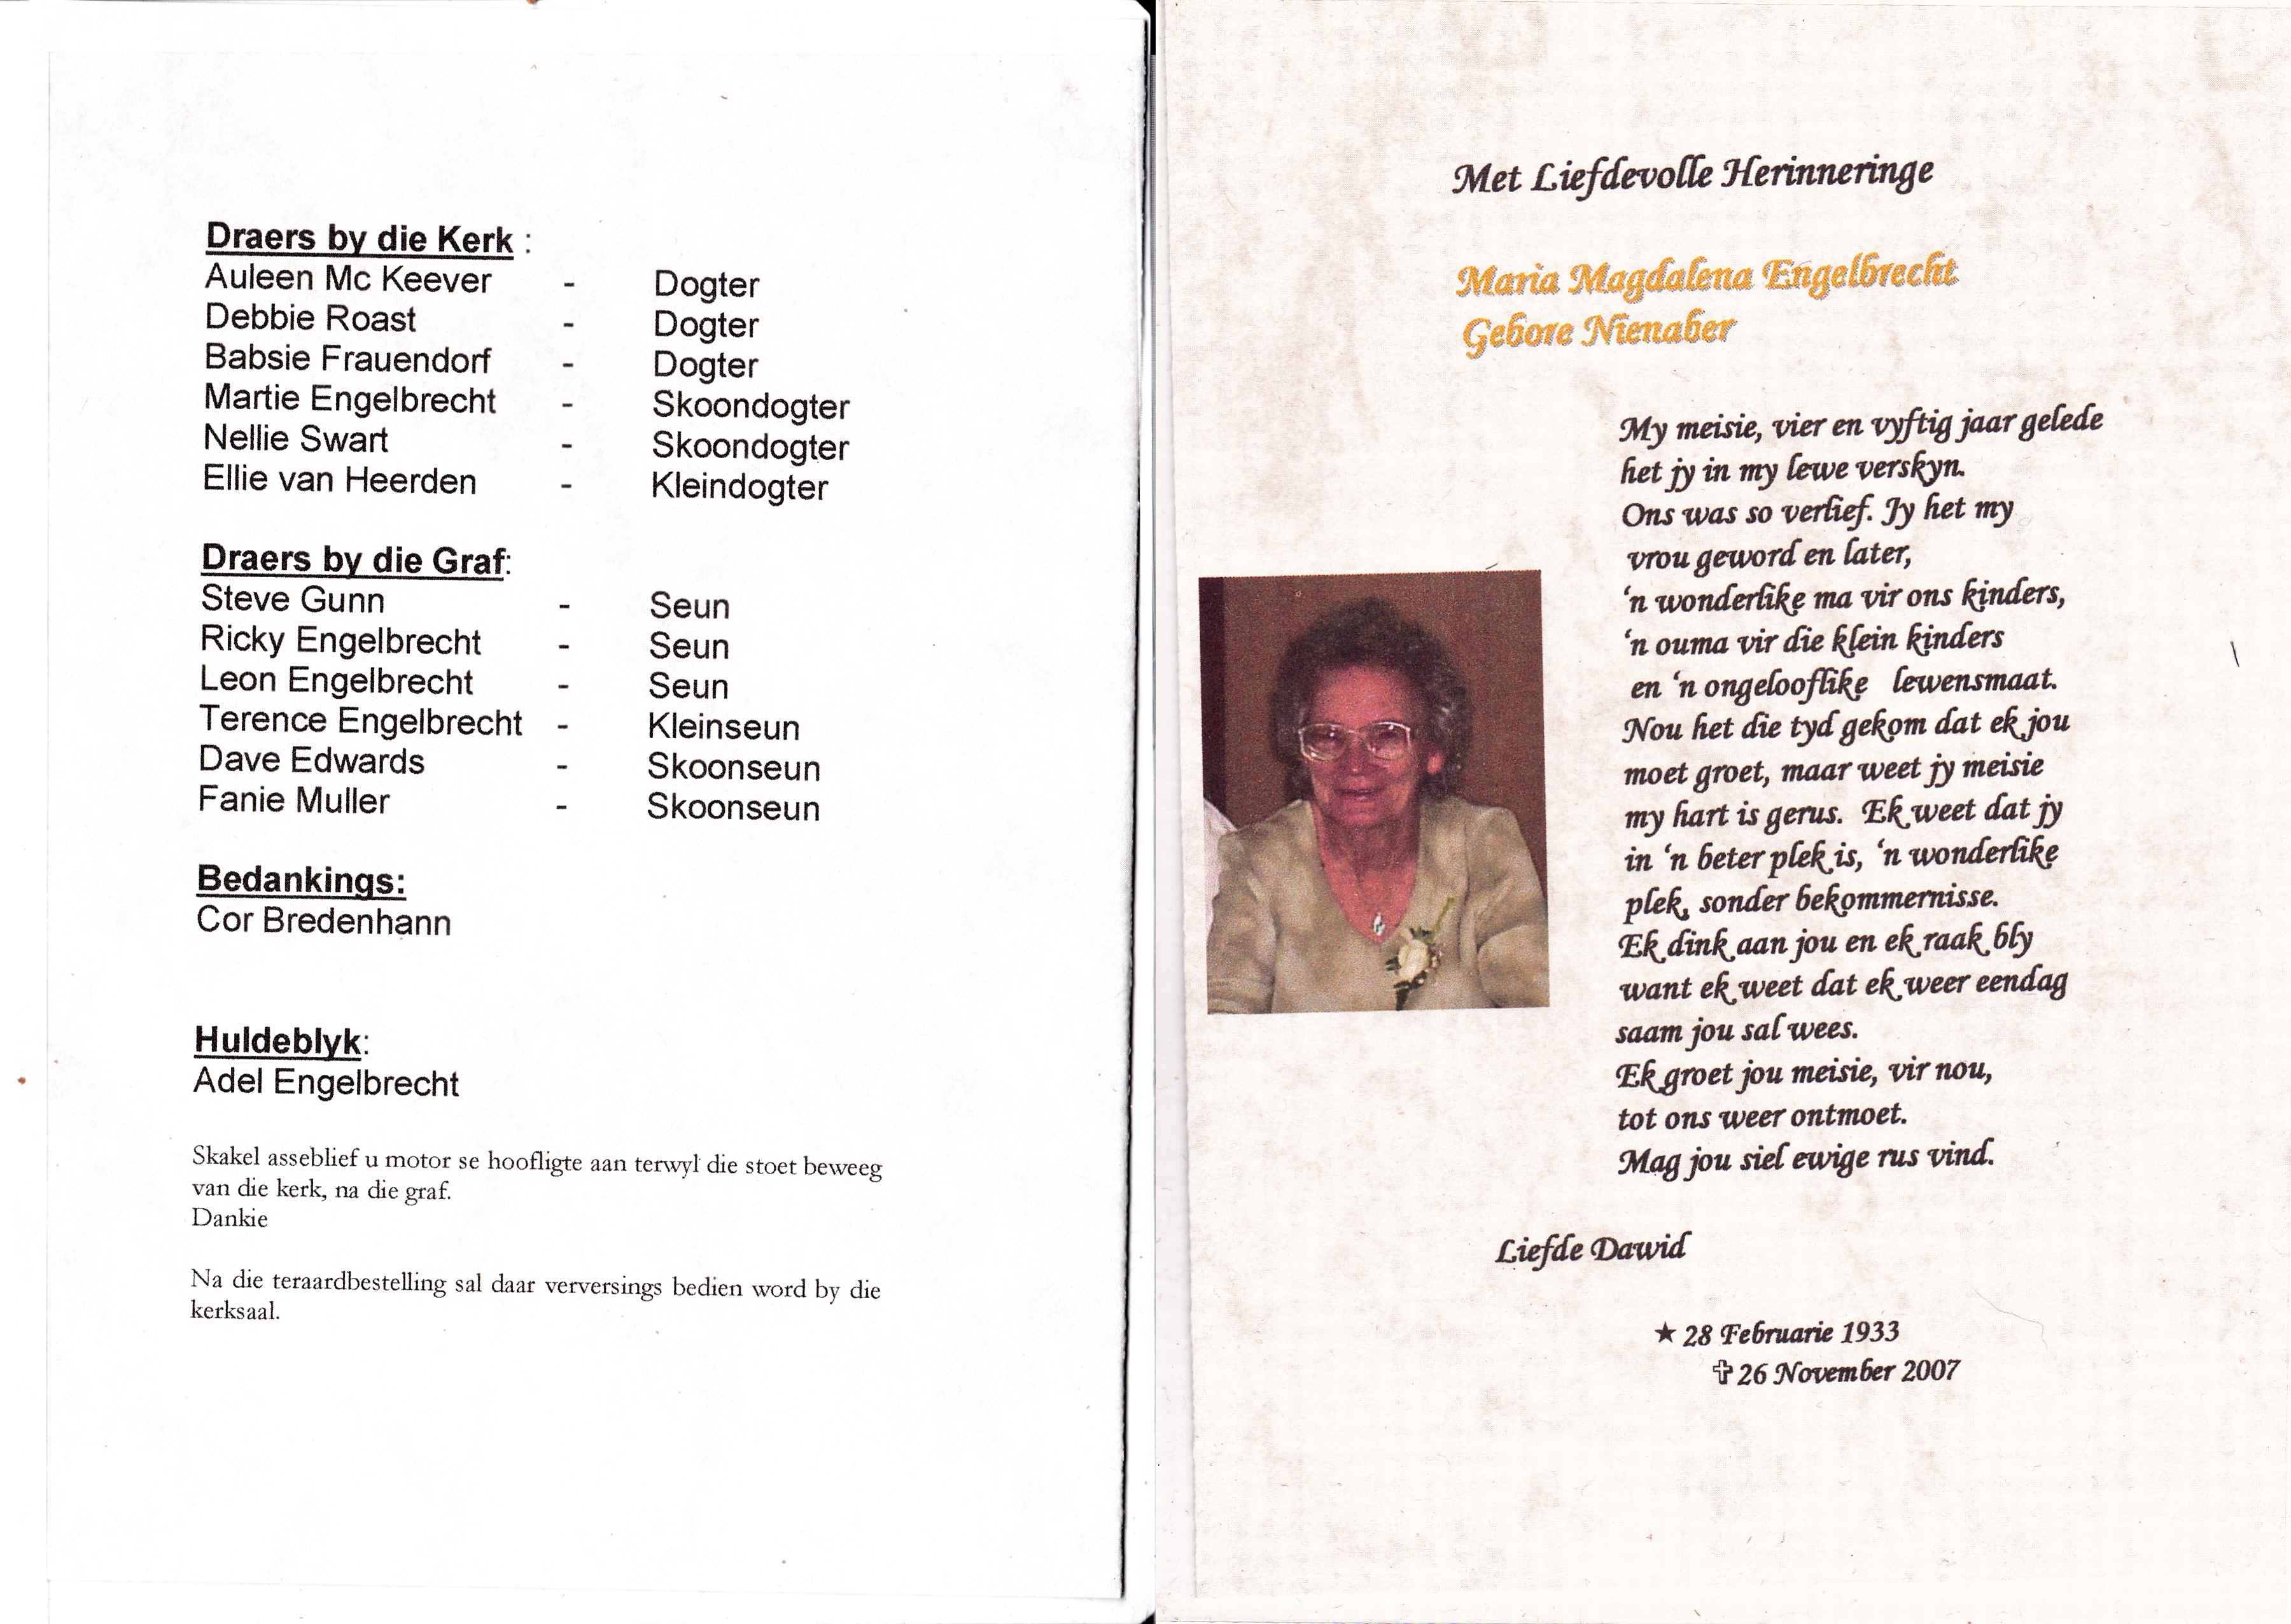 Draers by die Kerk :
Auleen Mc Keever - Dogter
Debbie Roast - Dogter
Babsie Frauendorf - Dogter
Martie Engelbrecht - Skoondogter
Nellie Swart - Skoondogter
Ellie van Heerden - Kleindogter
Draers by die Graf:
Steve Gunn - Seun
Ricky Engelbrecht - Seun
Leon Engelbrecht - Seun
Terence Engelbrecht - Kleinseun
Dave Edwards - Skoonseun
Fanie Muller - Skoonseun
Bedankings:
Cor Bredenhann
Huldeblyk:
Adel Engelbrecht
Skakel asseblief u motor se hoofligte aan terwyl die stoet beweeg
van die kerk, na die graf.
Dankie
Na die teraardbestelling sal daar verversings bedien word by die
kerksaal.
Met Liefdevolle Herinneringe
Maria Magdalena Engelbrecht
Gebore Nienaber
My meisie, vier en vyftig jaar gelede
het jy in my lewe verskyn.
Ons was so verlief. Jy het my
vrou geword en later,
'n wonderlike ma vir ons kinders,
'n ouma vir die klein kinders
en 'n ongelooflike lewensmaat.
Nou het die tyd gekom dat ek jou
moet groet, maar weet jy meisie
my hart is gerus. Ek weet dat jy
in 'n beter plek is, 'n wonderlike
plek, sonder bekommernisse.
Ek dink aan jou en ek raak bly
want ek weet dat ek weer eendag
saam jou sal wees.
Ek groet jou meisie, vir nou,
tot ons weer ontmoet.
Mag jou siel ewige rus vind.
Liefde Dawid
★ 28 Februarie 1933
✞ 26 November 2007